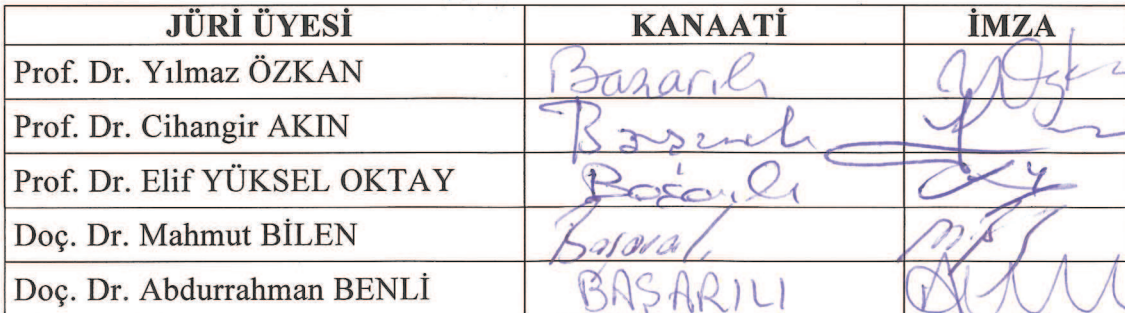 JÜRİ ÜYESİ KANAATİ İMZA
Prof. Dr. Yılmaz ÖZKAN Başarılı
Prof. Dr. Cihangir AKIN Başarılı
Prof. Dr. Elif YÜKSEL OKTAY Başarılı
Doç. Dr. Mahmut BİLEN Başarılı
Doç. Dr. Abdurrahman BENLİ BAŞARILI